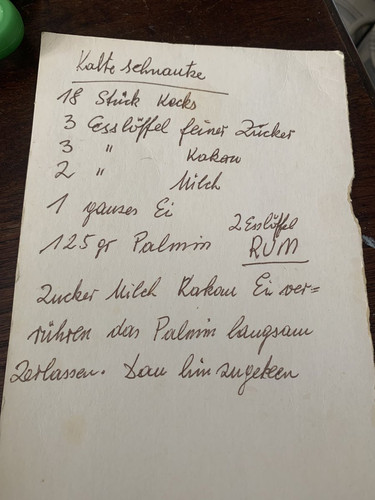 Kalte schnautze
18 Stück Kecks
3 Esslöffel feiner Zucker
3 " Kakau
2 " Milch
1 ganzes Ei
2 Esslöffel
125 gr Palmin RUM
Zucker Milch Kakau Ei ver=
rühren das Palmin langsam
Zerlassen. Dan hinzugeben